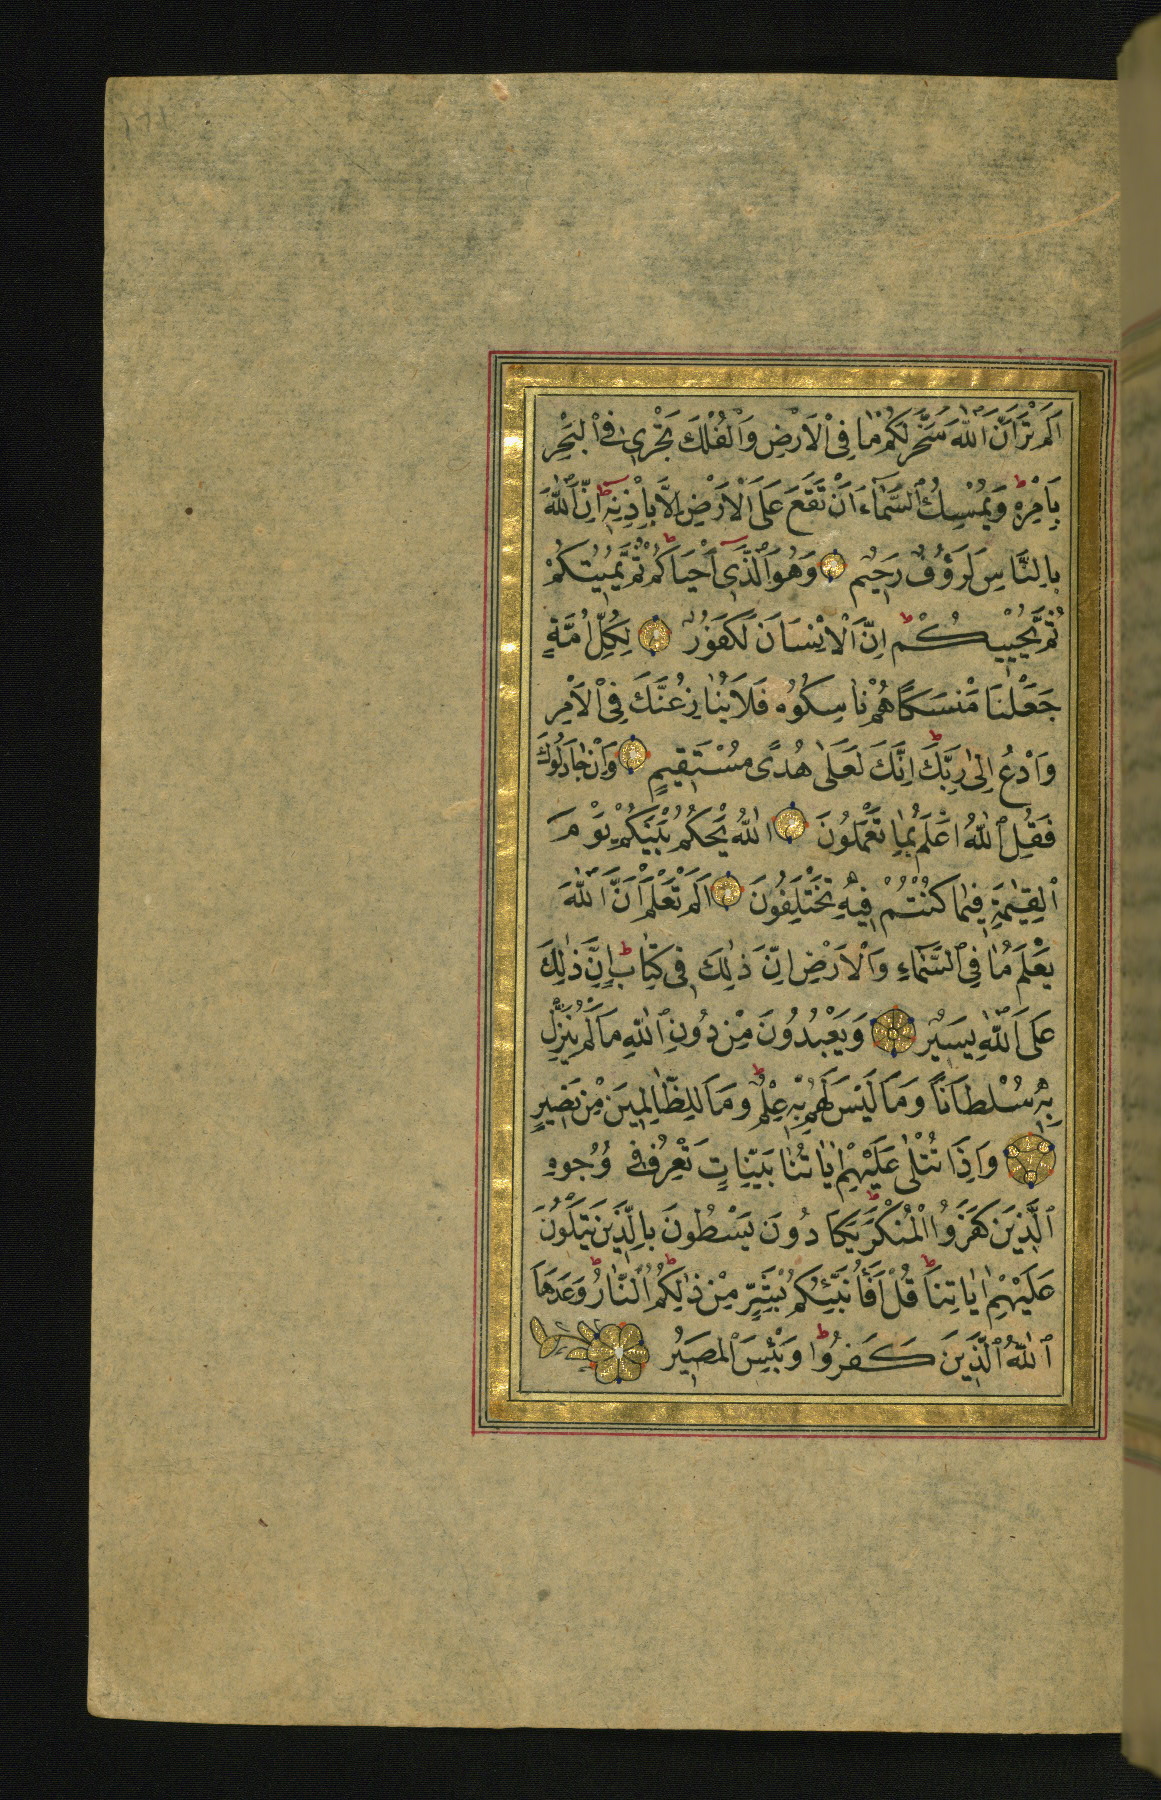 اَلَمْ تَرَ اَنَّ اللّٰهَ سَخَّرَ لَكُمْ مَا فِى الْاَرْضِ وَالْفُلْكَ تَجْرِى فِى الْبَحْرِ
بِاَمْرِهٖ ط وَيُمْسِكُ السَّمَاءَ اَنْ تَقَعَ عَلَى الْاَرْضِ اِلَّا بِاِذْنِهٖ ط اِنَّ اللّٰهَ
بِالنَّاسِ لَرَؤُفٌ رَحِيْمٌ وَهُوَ الَّذِى اَحْيَاكُمْ ط ثُمَّ يُمِيْتُكُمْ
ثُمَّ يُحْيِيْكُمْ ط اِنَّ الْاِنْسَانَ لَكَفُوْرٌ لِكُلِّ اُمَّةٍ
جَعَلْنَا مَنْسَكًا هُمْ نَاسِكُوْهُ فَلَا يُنَازِعُنَّكَ فِى الْاَمْرِ
وَادْعُ اِلٰى رَبِّكَ ط اِنَّكَ لَعَلٰى هُدًى مُسْتَقِيْمٍ وَاِنْ جَادَلُوْكَ
فَقُلِ اللّٰهُ اَعْلَمُ بِمَا تَعْمَلُوْنَ اَللّٰهُ يَحْكُمُ بَيْنَكُمْ يَوْمَ
الْقِيٰمَةِ فِيْمَا كُنْتُمْ فِيْهِ تَخْتَلِفُوْنَ اَلَمْ تَعْلَمْ اَنَّ اللّٰهَ
يَعْلَمُ مَا فِى السَّمَاءِ وَالْاَرْضِ اِنَّ ذٰلِكَ فِى كِتَابٍ ط اِنَّ ذٰلِكَ
عَلَى اللّٰهِ يَسِيْرٌ وَيَعْبُدُوْنَ مِنْ دُوْنِ اللّٰهِ مَا لَمْ يُنَزِّلْ
بِهٖ سُلْطَانًا وَمَا لَيْسَ لَهُمْ بِهٖ عِلْمٌ ط وَمَا لِلظَّالِمِيْنَ مِنْ نَصِيْرٍ
وَاِذَا تُتْلٰى عَلَيْهِمْ اٰيَاتُنَا بَيِّنَاتٍ تَعْرِفُ فِى وُجُوْهِ
الَّذِيْنَ كَفَرُوا الْمُنْكَرَ ط يَكَادُوْنَ يَسْطُوْنَ بِالَّذِيْنَ يَتْلُوْنَ
عَلَيْهِمْ اٰيَاتِنَا ط قُلْ اَفَاُنَبِّئُكُمْ بِشَرٍّ مِنْ ذٰلِكُمْ ط اَلنَّارُ ط وَعَدَهَا
اللّٰهُ الَّذِيْنَ كَفَرُوْا ط وَبِئْسَ الْمَصِيْرُ